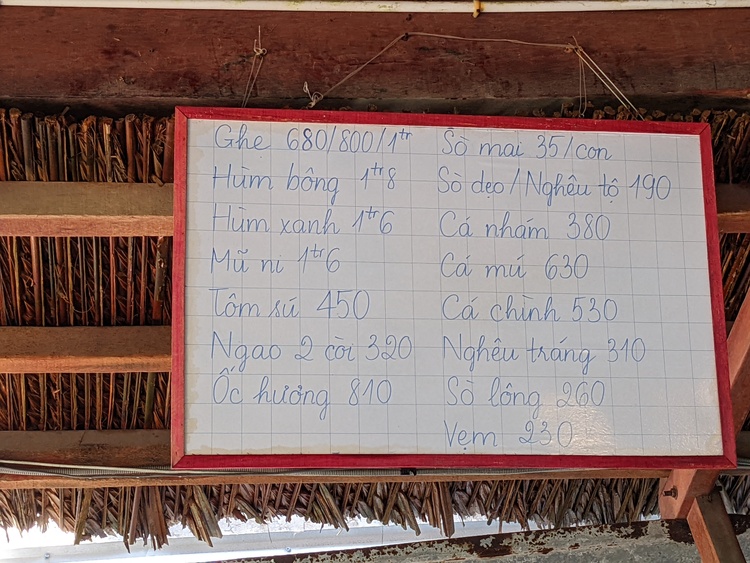 Ghẹ 680/800/1tr
Hùm bông 1tr8
Hùm xanh 1tr6
Mũ ni 1tr6
Tôm sú 450
Ngao 2 còi 320
Ốc hương 810
Sò mai 35/con
Sò dẹo/Nghêu tộ 190
Cá nhám 380
Cá mú 630
Cá chình 530
Nghêu tráng 310
Sò lông 260
Vẹm 230